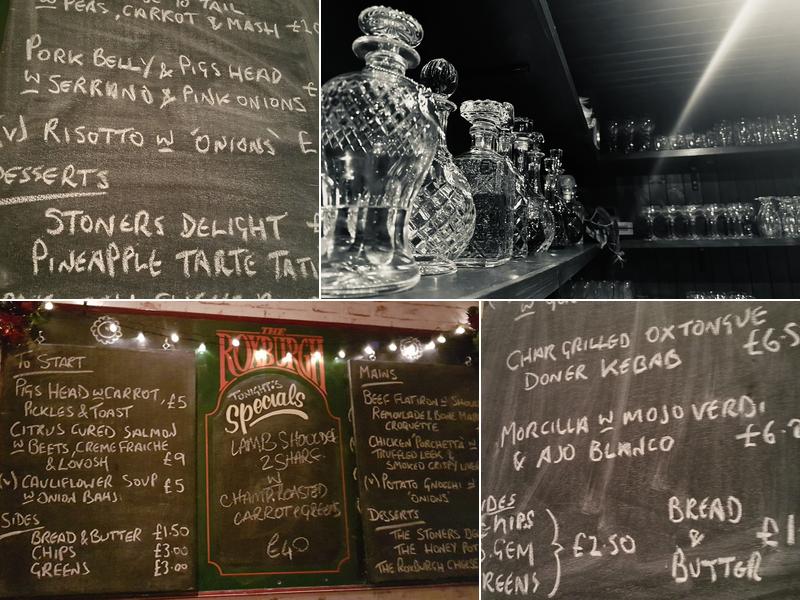 TO TAIL
W PEAS, CARROT & MASH
PORK BELLY & PIGS HEAD
W SERRANO & PINK ONIONS
(V) RISOTTO W 'ONIONS' £
DESSERTS
STONERS DELIGHT
PINEAPPLE TARTE TATI
TO START
PIGS HEAD W CARROT, £5
PICKLES & TOAST
CITRUS CURED SALMON
W BEETS, CREME FRAICHE
& LOVOSH £9
(V) CAULIFLOWER SOUP £5
W ONION BAHJI
SIDES
BREAD & BUTTER £1.50
CHIPS £3.00
GREENS £3.00
THE
ROXBURGH
TONIGHT'S
Specials
LAMB SHOULDER
2 SHARE
W
CHARROASTED
CARROT & GREENS
£40
MAINS
BEEF FLATIRON W SHOU
REMOULADE & BONE MAR
CROQUETTE
CHICKEN 'PORCHETTA' W
TRUFFLED LEEK &
SMOKED CRISPY
(V) POTATO GNOCCHI W
'ONIONS'
DESSERTS
THE STONERS DE
THE HONEY POT
THE ROXBURGH CHEESE
CHARGRILLED OXTONGUE £6.5
DONER KEBAB
MORCILLA W MOJO VERDI
& AJO BLANCO £6.
IDES
CHIPS
B.GEM
REENS
£2.50
BREAD
&
BUTTER
£1